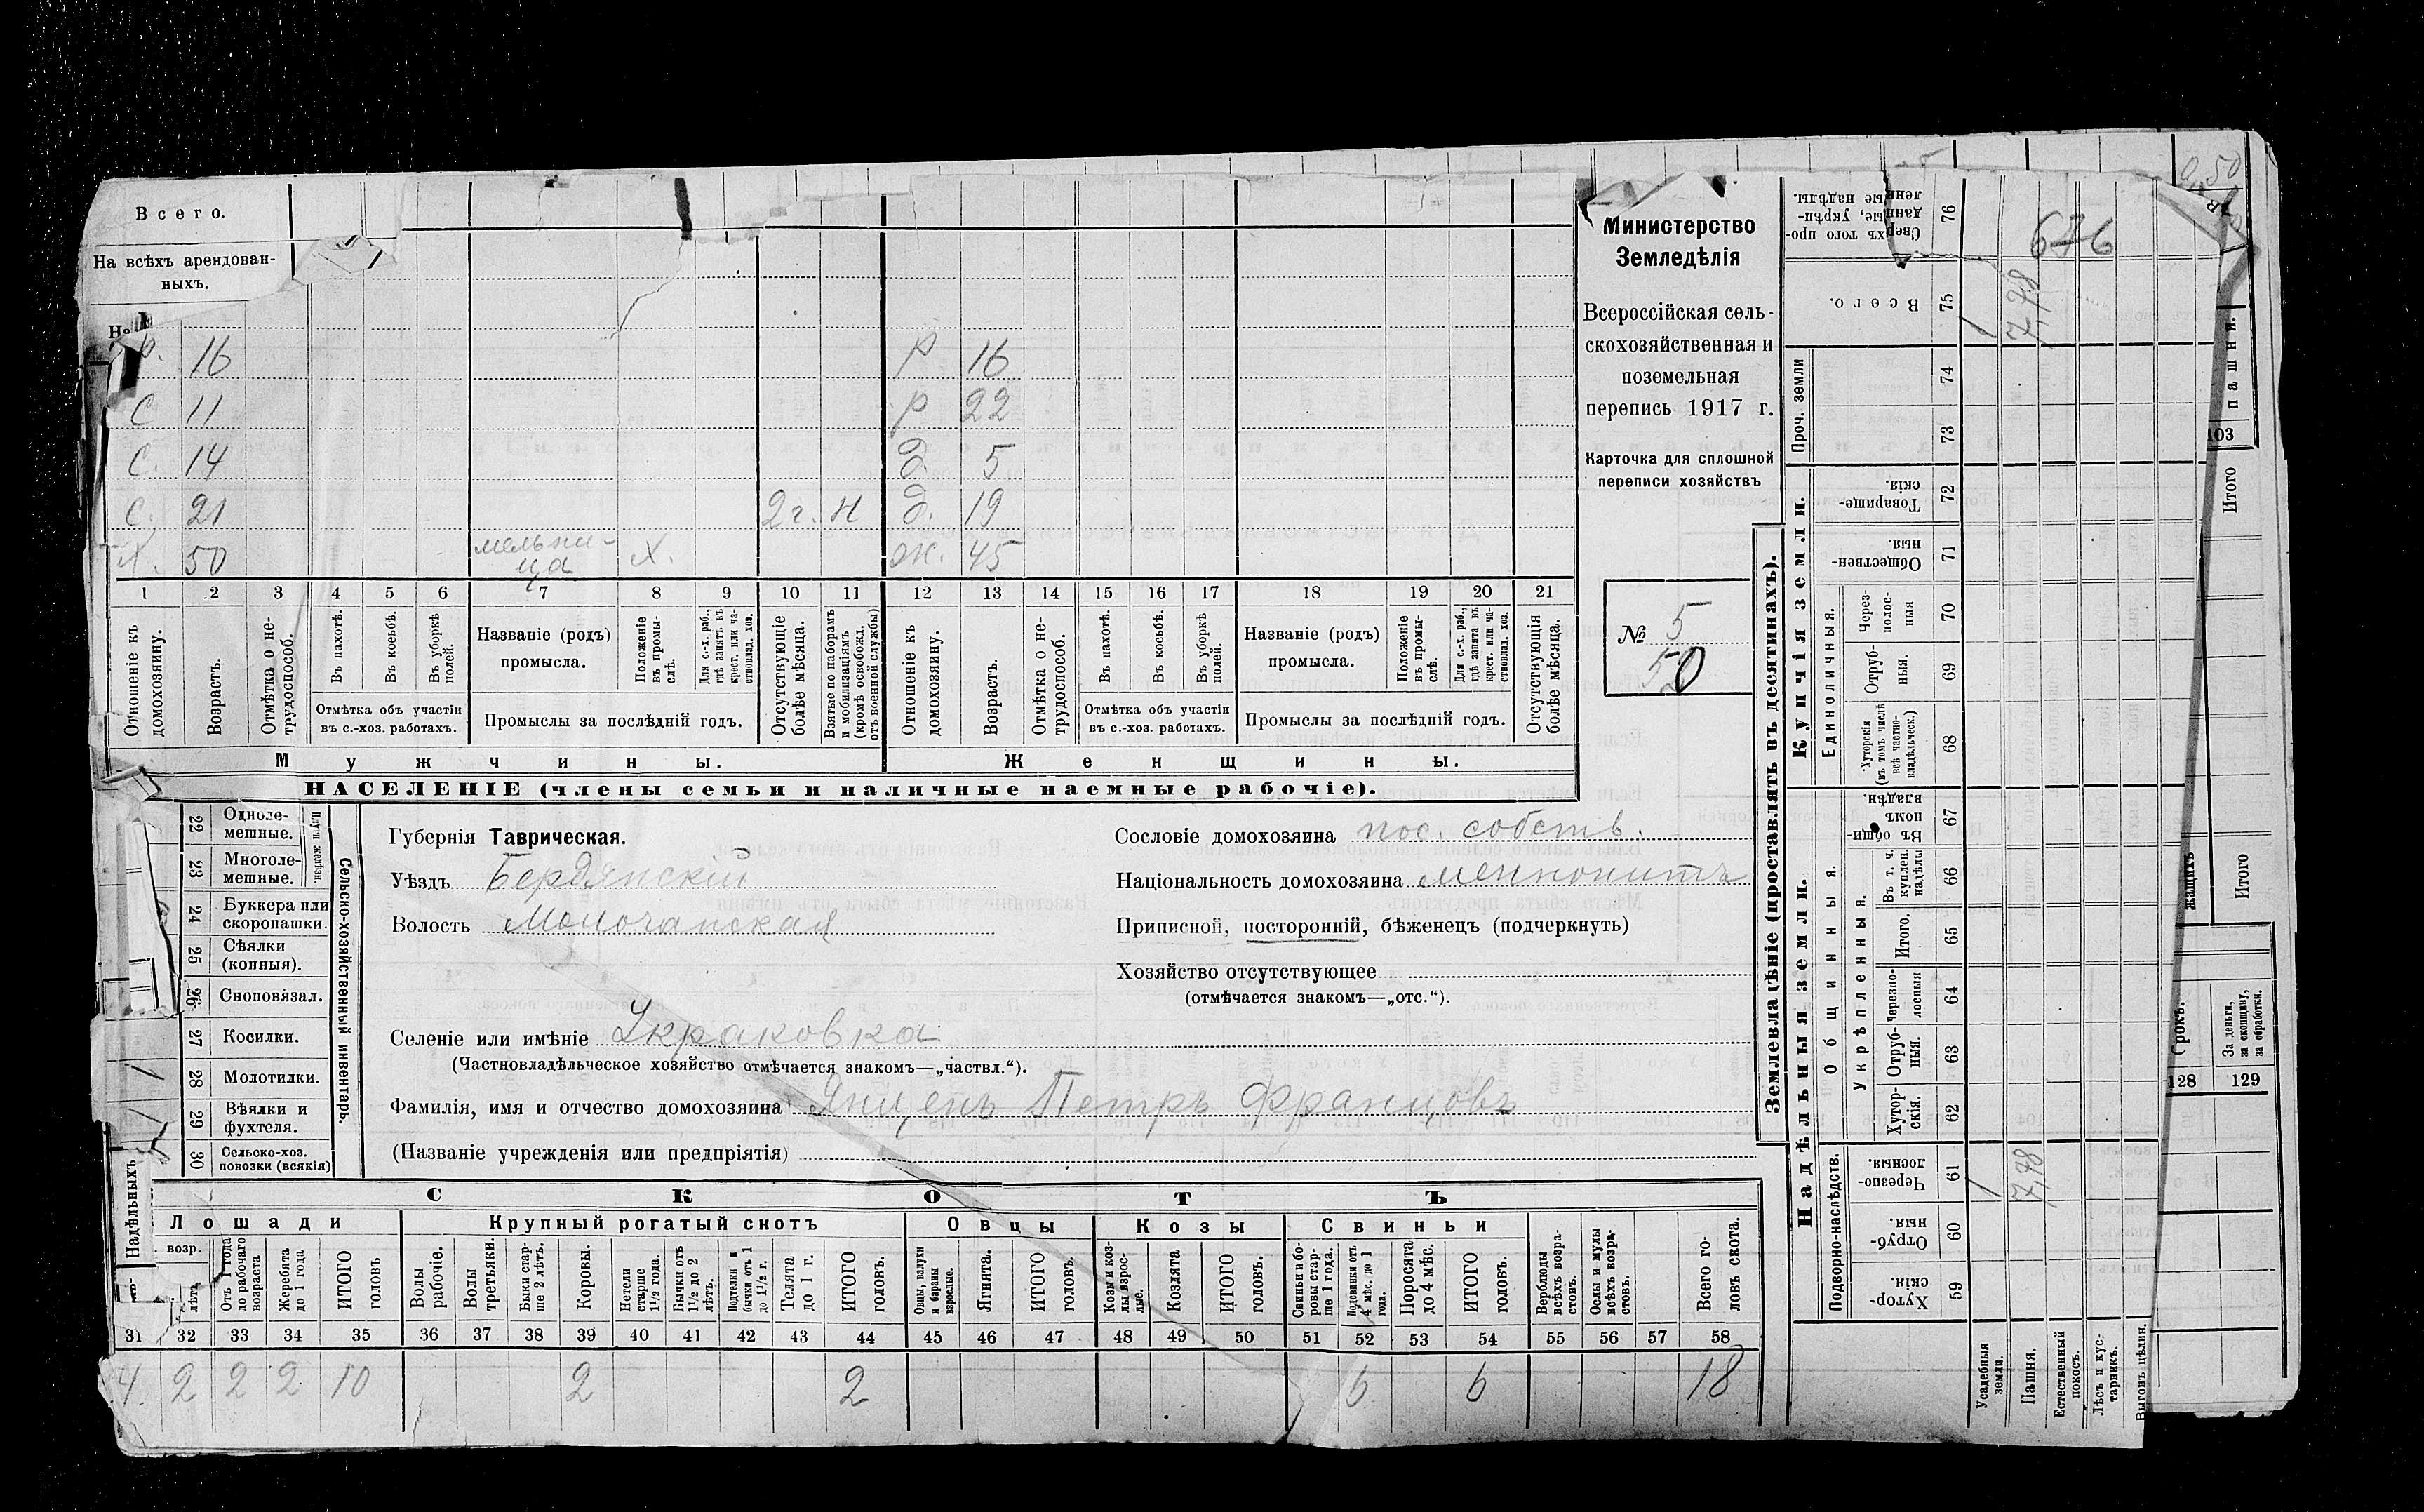 Всего.
На всѣхъ арендован-
ныхъ.
На
р. 16 Р 16
С 11 Р 22
С. 14 д. 5
С. 21 2 г. Н д. 19
Х. 50 мельни-
ца Х. ж. 45
1 2 3 4 5 6 7 8 9 10 11 12 13 14 15 16 17 18 19 20 21
Отношеніе къ домохозяину.
Возрастъ.
Отмѣтка о не-трудоспособ.
Въ пахотѣ.
Въ косьбѣ.
Въ уборкѣ полей.
Отмѣтка объ участіи
въ с.-хоз. работахъ.
Названіе (родъ)
промысла.
Положеніе въ промы-слѣ.
Для с.-х. раб., гдѣ занятъ въ крест. или ча-стновлад. хоз.
Промыслы за послѣдній годъ.
Отсутствующіе болѣе мѣсяца.
Взятые по наборамъ и мобилизаціямъ (кромѣ освобожд. отъ военной службы)
Отношеніе къ домохозяину.
Возрастъ.
Отмѣтка о не-трудоспособ.
Въ пахотѣ.
Въ косьбѣ.
Въ уборкѣ полей.
Отмѣтка объ участіи
въ с.-хоз. работахъ.
Названіе (родъ)
промысла.
Положеніе въ промы-слѣ.
Для с.-х. раб., гдѣ занята въ крест. или ча-стновлад. хоз.
Промыслы за послѣдній годъ.
Отсутствующія болѣе мѣсяца.
Мужчины. Женщины.
НАСЕЛЕНІЕ (члены семьи и наличные наемные рабочіе).
Министерство
Земледѣлія
Всероссійская сель-
скохозяйственная и
поземельная
перепись 1917 г.
Карточка для сплошной
переписи хозяйствъ
№ 5
50
22 Одноле-
мешные.
23 Многоле-
мешные.
Плуги желѣзн.
24 Буккера или
скоропашки.
25 Сѣялки
(конныя).
26 Сноповязал.
27 Косилки.
/ 28 Молотилки.
/ 29 Вѣялки и
фухтеля.
30 Сельско-хоз.
повозки (всякія)
Сельско-хозяйственный инвентарь.
Губернія Таврическая.
Уѣздъ Бердянскій
Волость Молочанская
Сословіе домохозяина пос. собств.
Національность домохозяина меннонитъ
Приписной, посторонній, бѣженецъ (подчеркнуть)
Хозяйство отсутствующее
(отмѣчается знакомъ—„отс.“).
Селеніе или имѣніе
(Частновладѣльческое хозяйство отмѣчается знакомъ—„частвл.“).
Фамилія, имя и отчество домохозяина Янценъ Петръ Францовъ
(Названіе учрежденія или предпріятія)
Надѣльныхъ
СКОТЪ
Лошади Крупный рогатый скотъ Овцы Козы Свиньи
возр.
лѣтъ
Отъ 1 года до рабочаго возраста
Жеребята до 1 года
ИТОГО головъ
Волы рабочіе.
Волы третьяки.
Быки стар-ше 2 лѣтъ.
Коровы.
Нетели старше 1½ года.
Бычки отъ 1½ до 2 лѣтъ.
Подтелки и бычки отъ 1 до 1½ г.
Телята до 1 г.
ИТОГО головъ.
Овцы, валухи и бараны взрослые.
Ягнята.
ИТОГО головъ.
Козы и коз-лы взрос-лые.
Козлята
ИТОГО головъ.
Свиньи и бо-ровы стар-ше 1 года.
Подсвинки отъ 4 мѣс. до 1 года.
Поросята до 4 мѣс.
ИТОГО головъ.
Верблюды всѣхъ возра-стовъ.
Ослы и мулы всѣхъ возра-стовъ.
Всего го-ловъ скота.
31 32 33 34 35 36 37 38 39 40 41 42 43 44 45 46 47 48 49 50 51 52 53 54 55 56 57 58
4 2 2 2 10 2 2 6 6 18
Землевладѣніе (проставлять въ десятинахъ).
Купчія земли.
Надѣльныя земли.
Сверхъ того про-данные, укрѣп-ленные надѣлы. 76
Всего. 75 / 7,78
Проч. земли 74 73
Товарище-скія. 72
Обществен-ныя. 71
Единоличныя.
Через-полос-ныя 70
Отруб-ныя. 69
Хуторскія (въ томъ числѣ всѣ частно-владѣльческ.) 68
Общинныя.
Въ общи-номъ владѣн. 67
Укрѣпленныя.
Въ т. ч. куплен. надѣлы 66
Итого. 65
Черезпо-лосныя 64
Отруб-ныя. 63
Хутор-скія. 62
Подворно-наслѣдств.
Черезпо-лосныя 61 / 7,78
Отруб-ныя 60
Хутор-скія. 59
Усадебныя земли.
Пашня.
Естественный покосъ.
Лѣсъ и кус-тарникъ.
Выгонъ цѣлин.
676
50
пашни.
103
Итого
жащихъ
Итого
Срокъ.
За деньги, за скопщину, за обработки.
128 129